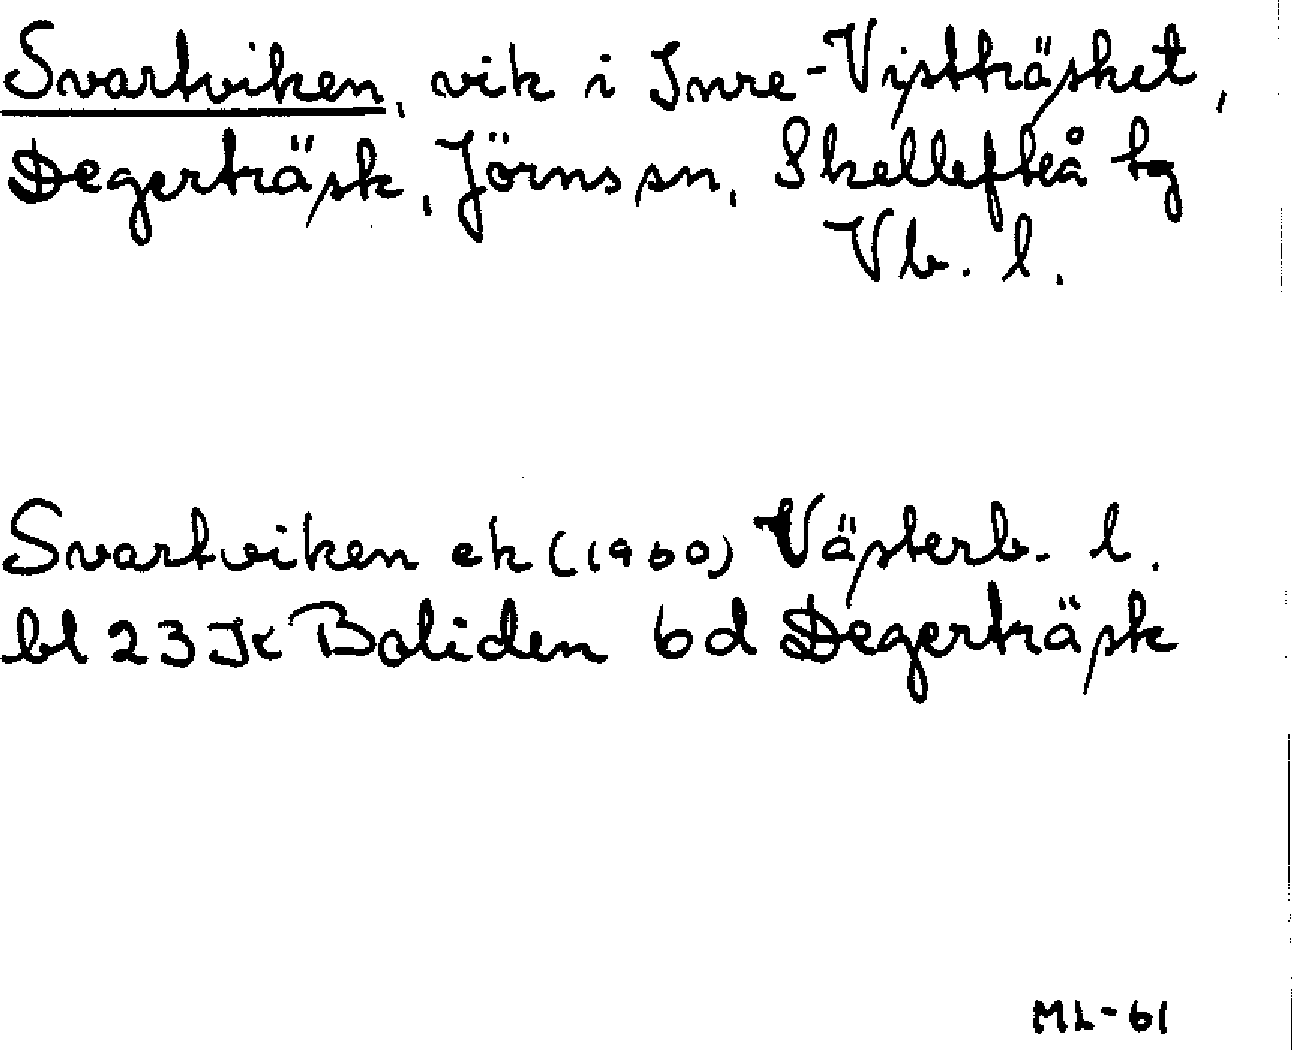 Svartviken, vik i Inre-Vistträsket,
Degerträsk, Jörns sn, Skellefteå tg
Vb. l.
Svartviken ek (1960) Västerb. l.
bl 23 JK Boliden 6d Degerträsk
ML-61